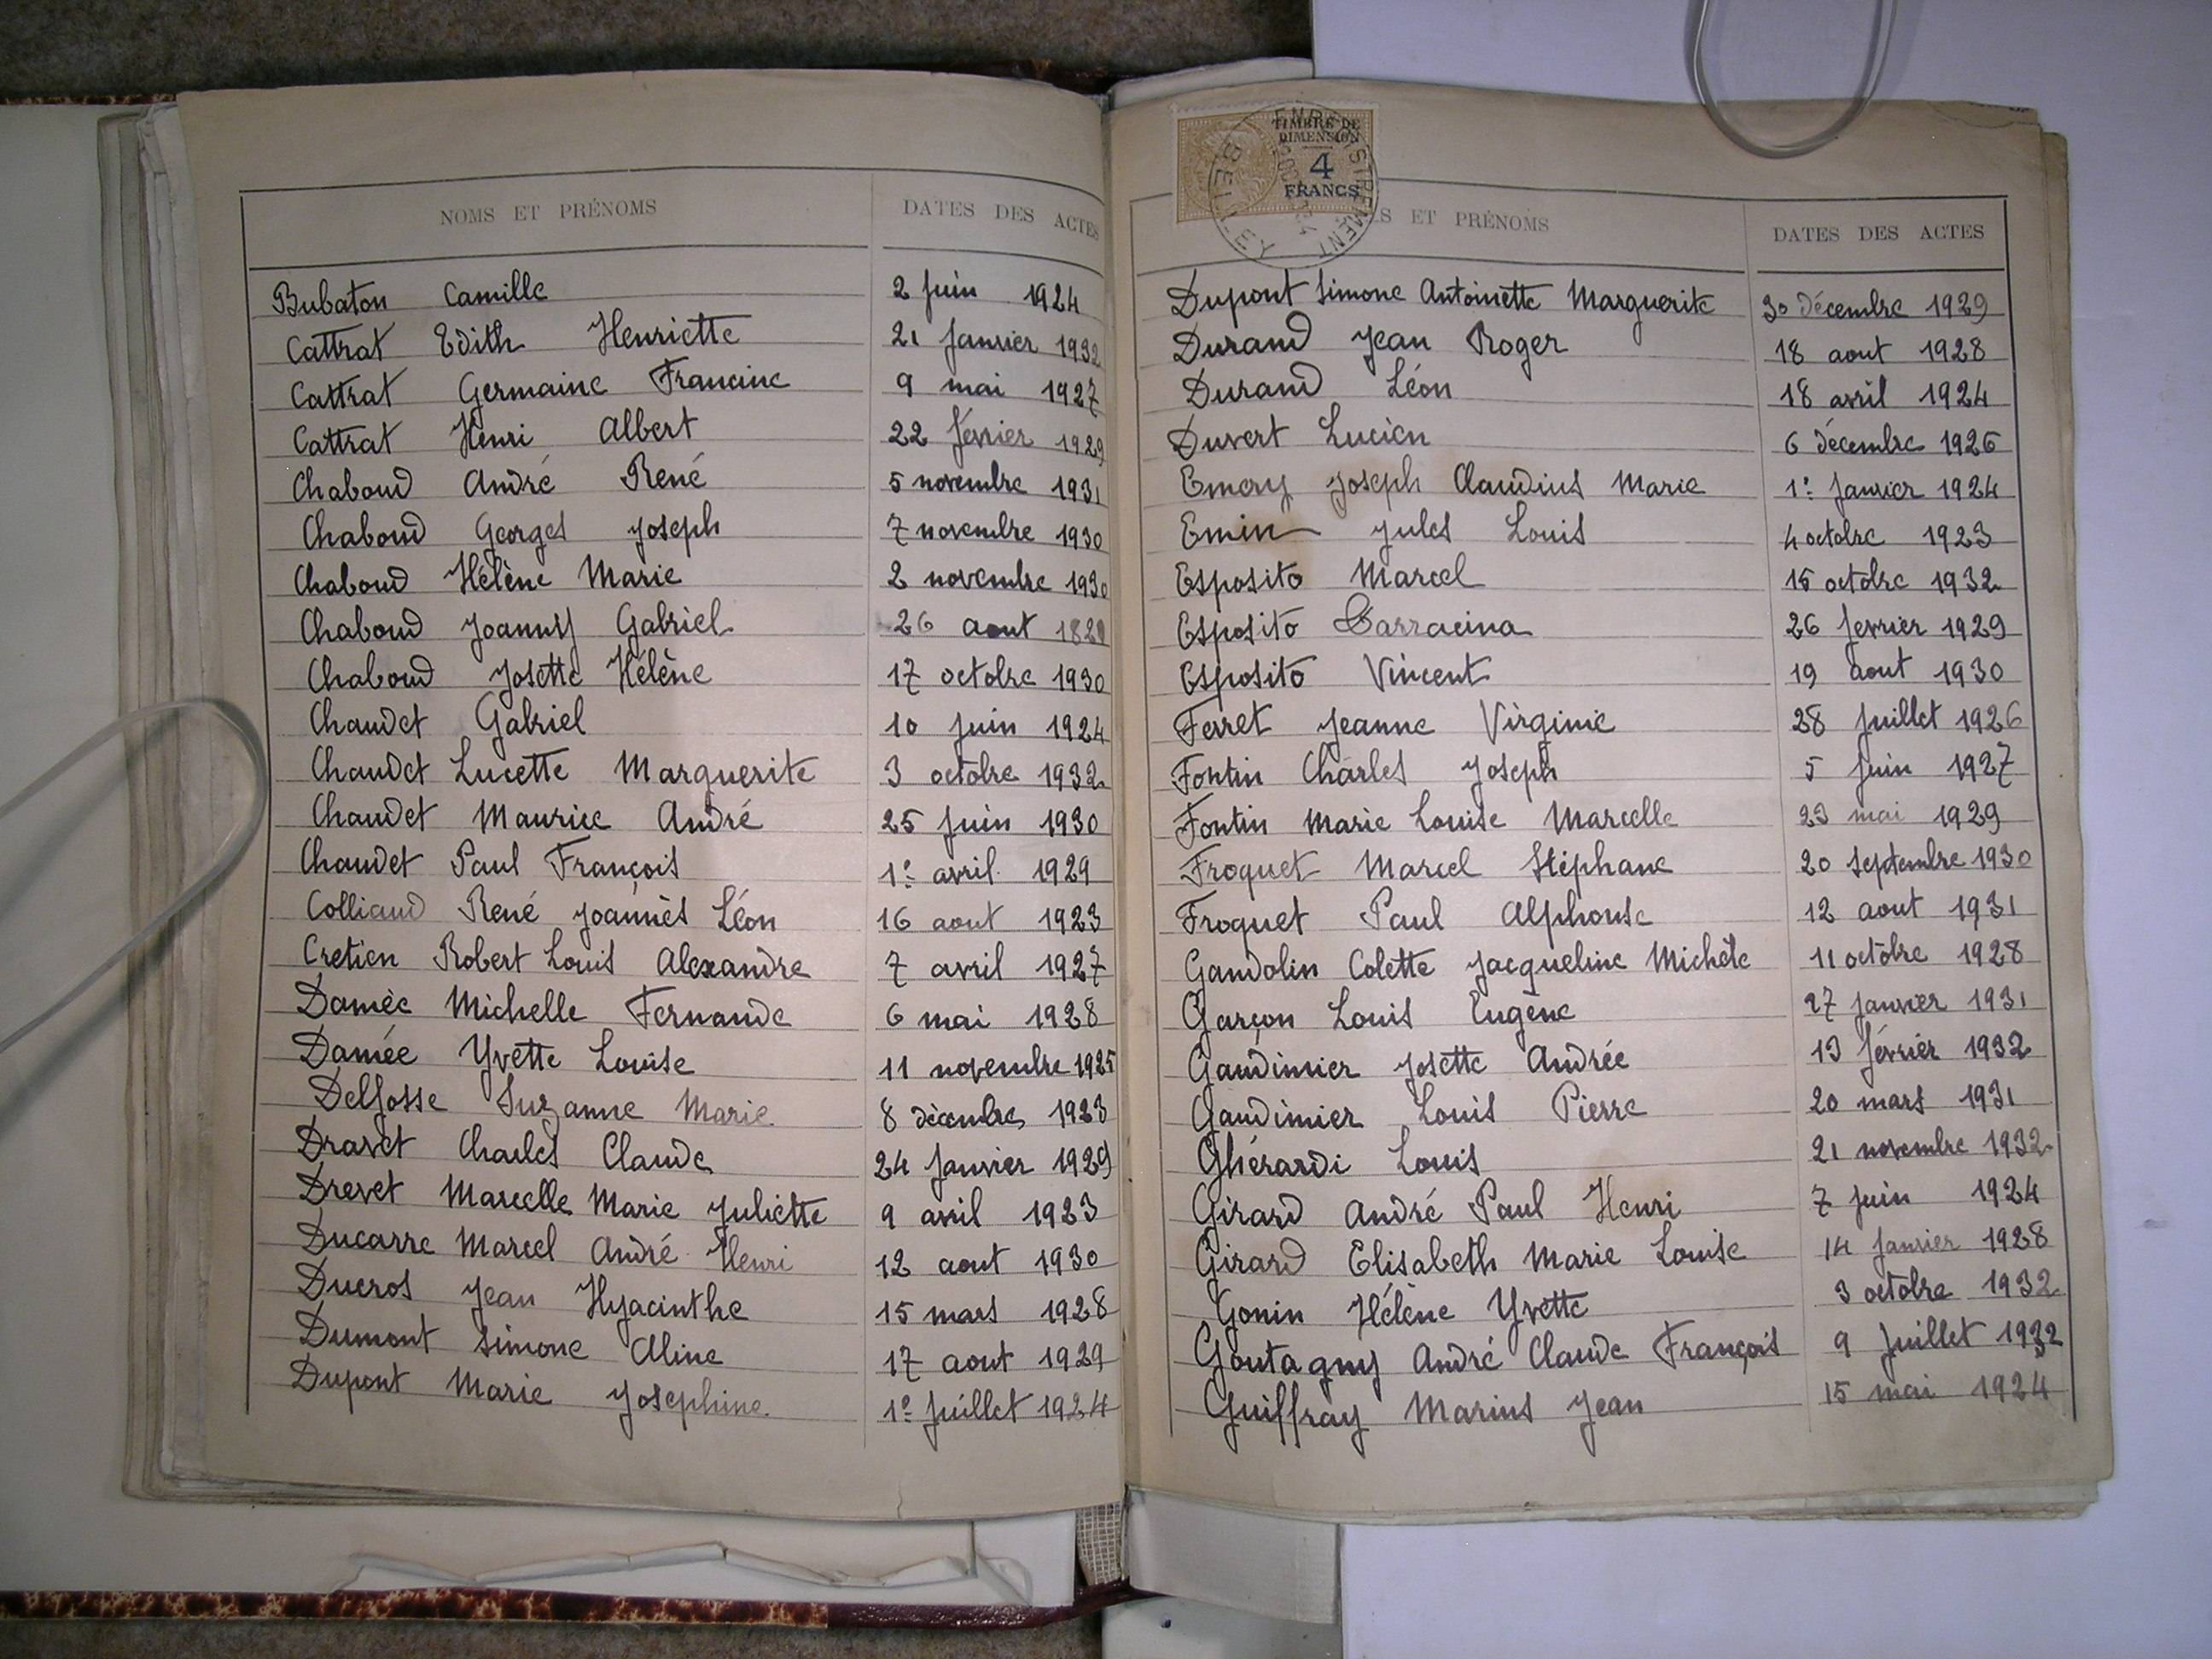 NOMS ET PRÉNOMS DATES DES ACTES
Bubaton Camille 2 juin 1924
Cattrat Edith Henriette 21 janvier 1932
Cattrat Germaine Francine 9 mai 1927
Cattrat Henri Albert 22 février 1929
Chaboud André René 5 novembre 1931
Chaboud Georges Joseph 7 novembre 1930
Chaboud Hélène Marie 2 novembre 1930
Chaboud Joanny Gabriel 26 aout
Chaboud Josette Hélène 17 octobre 1930
Chaudet Gabriel 10 juin 1924
Chaudet Lucette Marguerite 3 octobre 1932
Chaudet Maurice André 25 juin 1930
Chaudet Paul François 1er avril 1929
Colliaud René Joannès Léon 16 aout 1923
Cretien Robert Louis Alexandre 7 avril 1927
Damée Michelle Fernande 6 mai 1928
Damée Yvette Louise 11 novembre 1925
Delfosse Suzanne Marie 8 décembre 1923
Dravet Charles Claude 24 janvier 1929
Drevet Marcelle Marie Juliette 9 avril 1923
Ducarre Marcel André Henri 12 aout 1930
Ducros Jean Hyacinthe 15 mars 1928
Dumont Simone Aline 17 aout 1929
Dupont Marie Josephine 1er juillet 1924
TIMBRE DE
DIMENSION
4
FRANCS
ENREGISTREMENT
BELLEY
S ET PRÉNOMS DATES DES ACTES
Dupont Simone Antoinette Marguerite 30 décembre 1929
Durand Jean Roger 18 aout 1928
Durand Léon 18 avril 1924
Duvert Lucien 6 décembre 1926
Emery Joseph Claudius Marie 1er janvier 1924
Emin Jules Louis 4 octobre 1923
Esposito Marcel 15 octobre 1932
Esposito Sarracina 26 fevrier 1929
Esposito Vincent 19 aout 1930
Ferret Jeanne Virginie 28 juillet 1926
Fontin Charles Joseph 5 juin 1927
Fontin Marie Louise Marcelle 23 mai 1929
Froquet Marcel Stéphane 20 septembre 1930
Froquet Paul Alphonse 12 aout 1931
Gandolin Colette Jacqueline Michèle 11 octobre 1928
Garçon Louis Eugène 27 janvier 1931
Gaudimier Josette Andrée 13 février 1932
Gaudimier Louis Pierre 20 mars 1931
Ghérardi Louis 21 novembre 1932
Girard André Paul Henri 7 juin 1924
Girard Elisabeth Marie Louise 14 janvier 1928
Gonin Hélène Yvette 3 octobre 1932
Goutagny André Claude François 9 juillet 1932
Guiffray Marius Jean 15 mai 1924